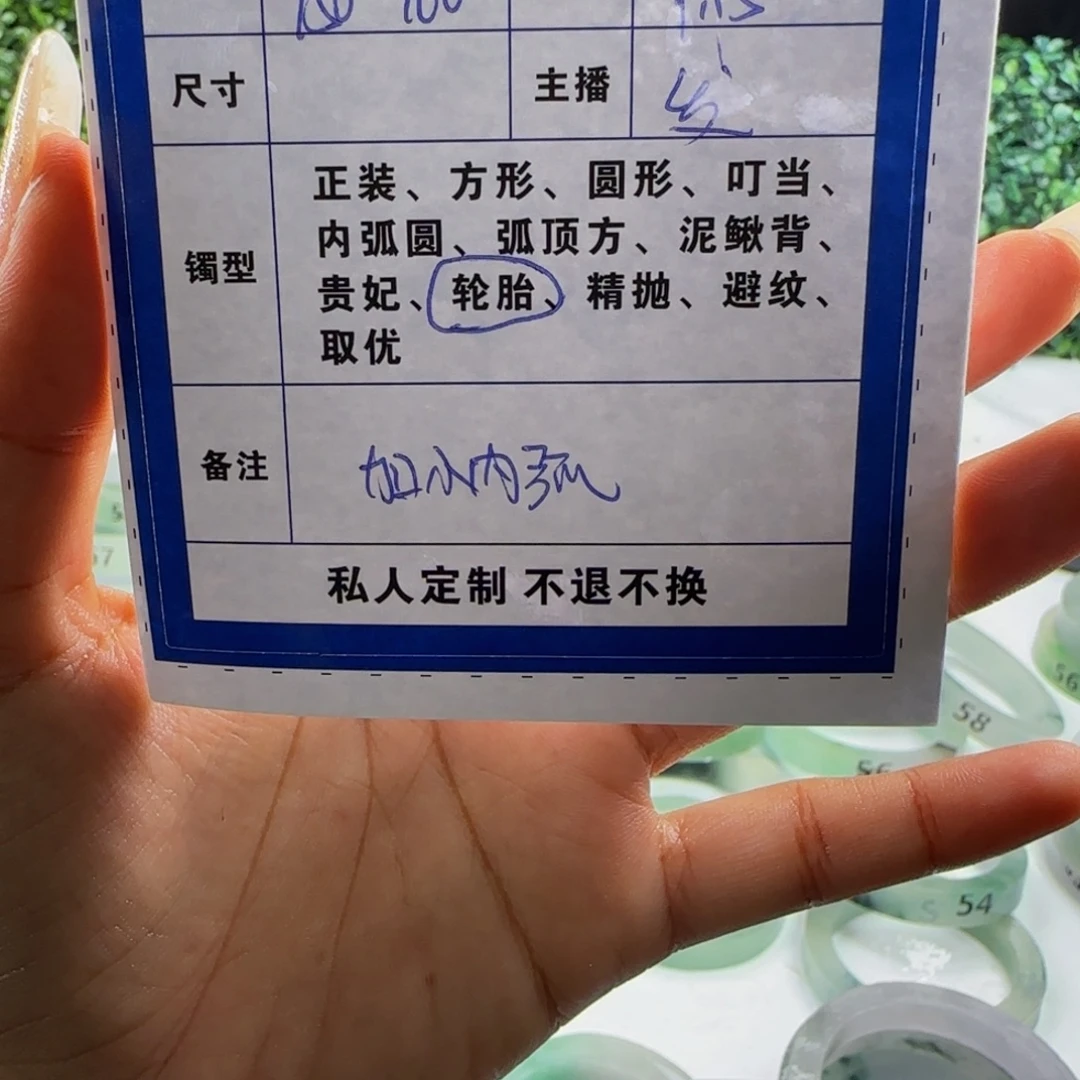 尺寸 主播 发
镯型 正装、方形、圆形、叮当、
内弧圆、弧顶方、泥鳅背、
贵妃、轮胎、精抛、避纹、
取优
备注 加小内弧
私人定制 不退不换
58
56
56
54
57